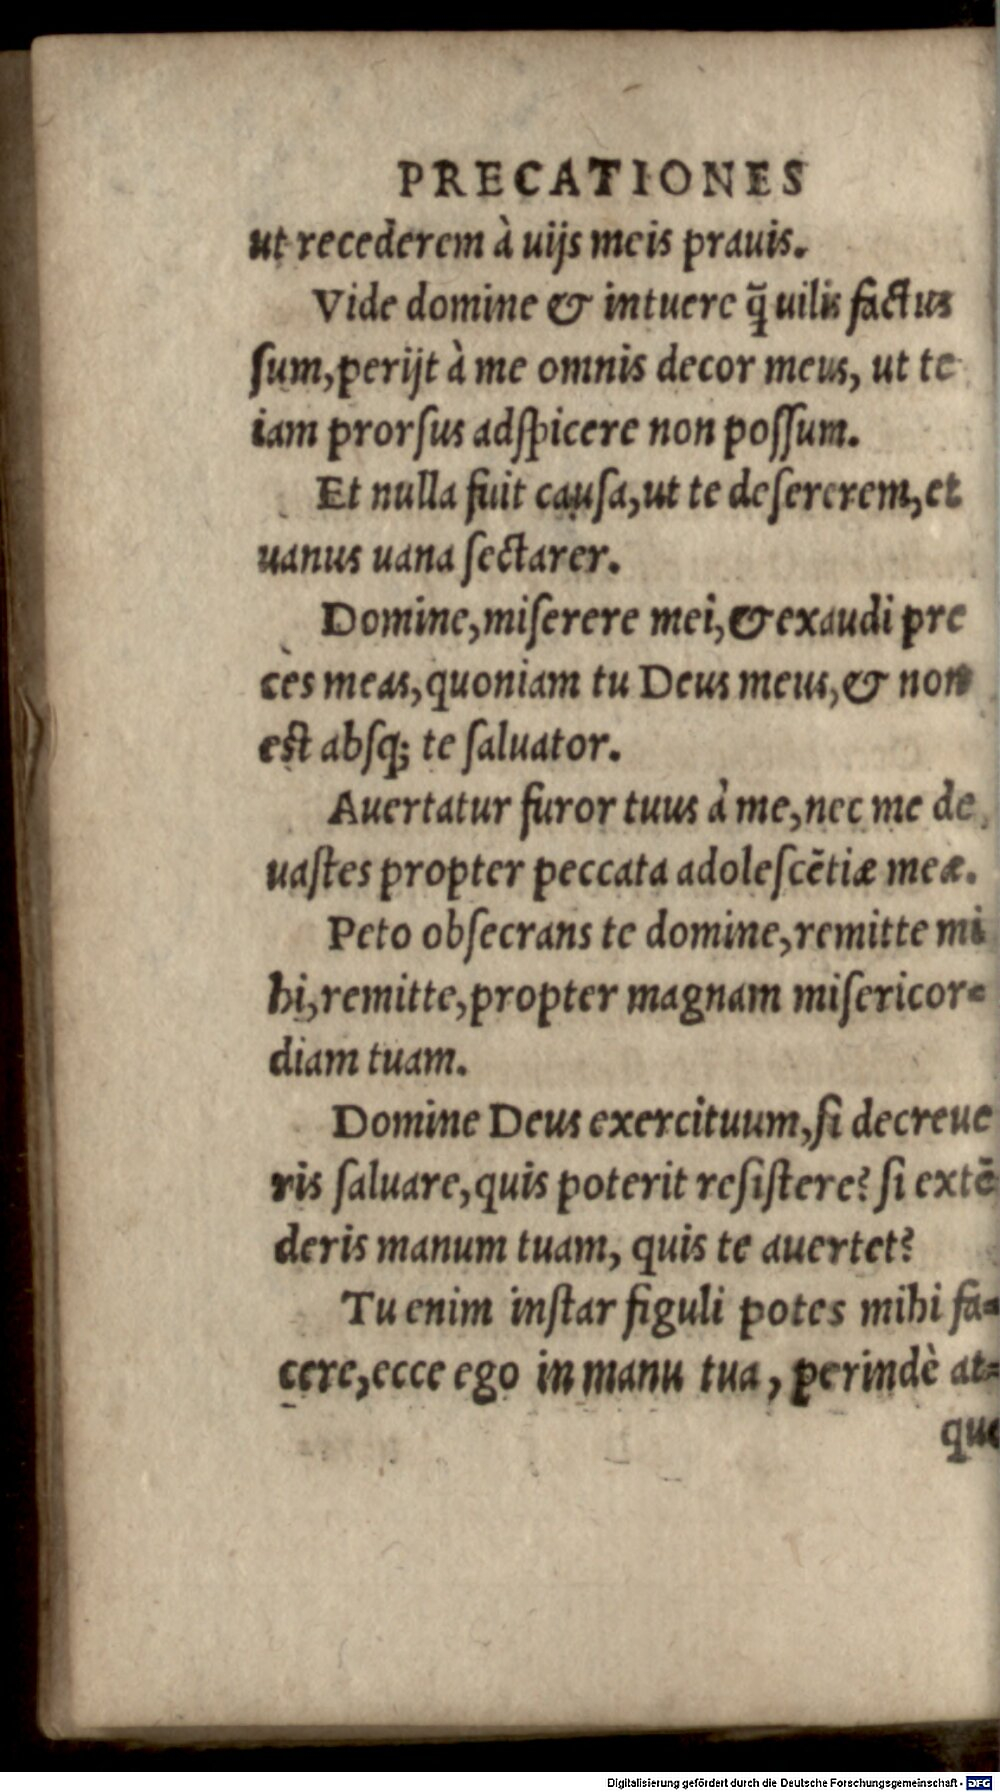 PRECATIONES
ut recederem à uijs meis prauis.
Vide domine & intuere q̃ uilis factus
ſum, perijt à me omnis decor meus, ut te
iam prorſus adſpicere non poſſum.
Et nulla fuit cauſa, ut te deſererem, et
uanus uana ſectarer.
Domine, miſerere mei, & exaudi pre
ces meas, quoniam tu Deus meus, & non
est abſq; te ſaluator.
Auertatur furor tuus à me, nec me de
uaſtes propter peccata adoleſcẽtiæ meæ.
Peto obſecrans te domine, remitte mi
hi, remitte, propter magnam miſericor=
diam tuam.
Domine Deus exercituum, ſi decreue
ris ſaluare, quis poterit reſiſtere? ſi extẽ
deris manum tuam, quis te auertet?
Tu enim inſtar figuli potes mihi fa=
cere, ecce ego in manu tua, perindè at=
que
Digitalisierung gefördert durch die Deutsche Forschungsgemeinschaft - DFG